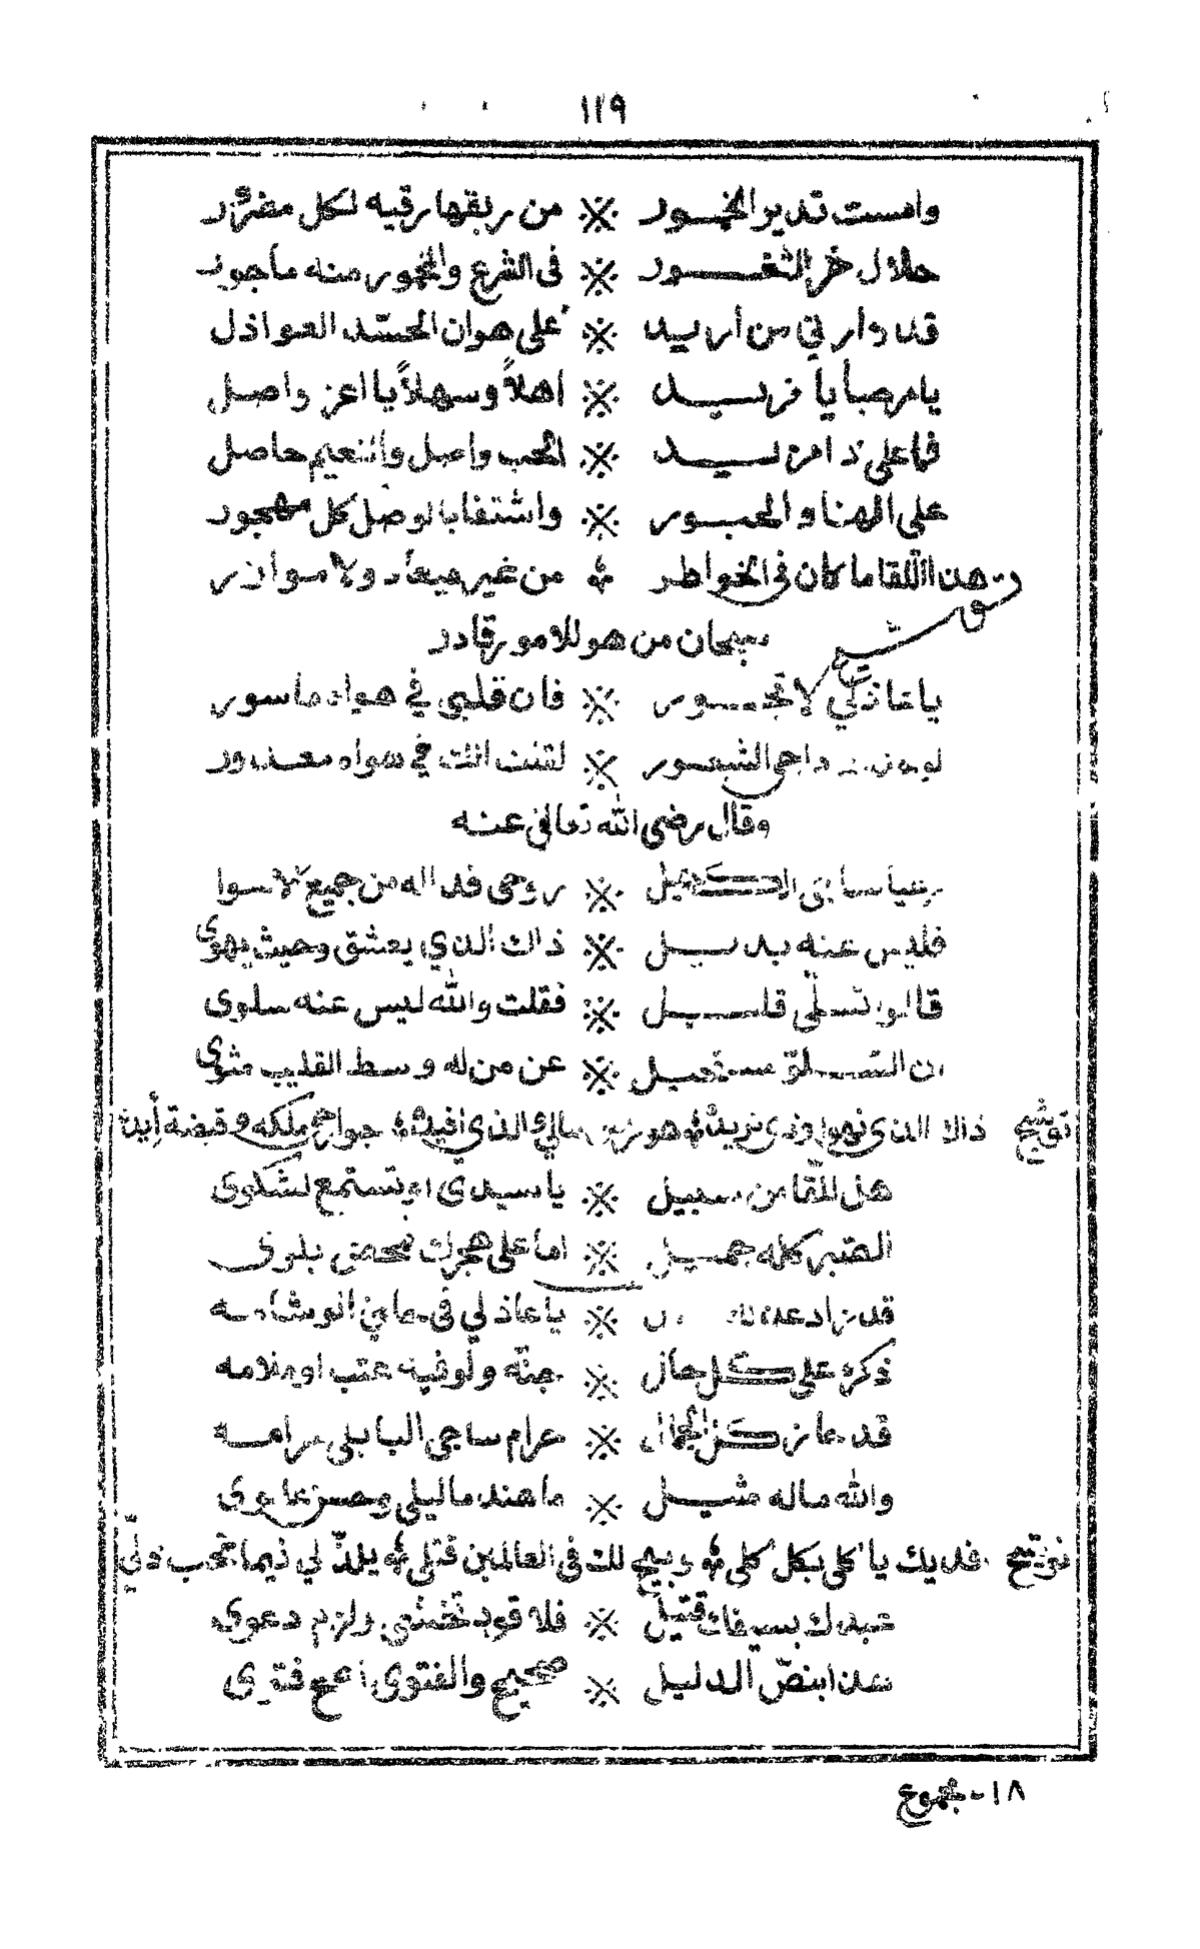 ١١٩
وامست تدير الخمور ※ من ريقها رقيه لكل مضرور
حلال خمر الثغور ※ في الشرع والمخمور منه مأجور
قد دار ني من اريد ※ على هوان الحسد العواذل
يا مرحبا يا فريد ※ اهلاً وسهلاً يا اعز واصل
فما على ذا مزيد ※ الحب واصل والنعيم حاصل
على الهنا والحبور ※ واشتفا بالوصل كل مهجور
توشيح هذا اللقا ما كان في الخواطر ※ من غير ميعاد ولا موازر
سبحان من هو للامور قادر
يا عاذلي لا تجور ※ فان قلبي في هواه مأسور
داجي الشعور ※ لقلت انك في هواه معذور
وقال رضي الله تعالى عنه
ساجي ※ روحي فدا له من جميع الاسوا
فليس عنه بديل ※ ذاك الذي يعشق وحيث يهوى
قالوا تسلّى قليل ※ فقلت والله ليس عنه سلوى
ان التسلّي مستحيل ※ عن من له وسط القلب مثوى
توشيح ذاك الذي نهوا وذي نريده هو والذي افيده جوارحي ملكه وقبضة أيده
هل للّقا من سبيل ※ يا سيدي او تستمع لشكوى
الصبر كله جميل ※ اما على هجرك فمحض بلوى
قد زاد ※ يا عاذلي في حامي الوشامه
ذكره على كل حال ※ جنّه ولو فيه عتب او ملامه
قد حاز كنز الجمال ※ حرام ساجي البابلي مرامه
والله ماله مثيل ※ ما هند ما ليلى وحسن علوى
توشيح فديك يا كلي بكل كلي وبيح لك في العالمين قتلي يلذّ لي فيما تحب ذلّي
عبدك بسيفك قتيل ※ فلا قود تخشى ولزم دعوى
هذا بنصّ الدليل ※ صحيح والفتوى اصح فتوى
١٨ - مجموع